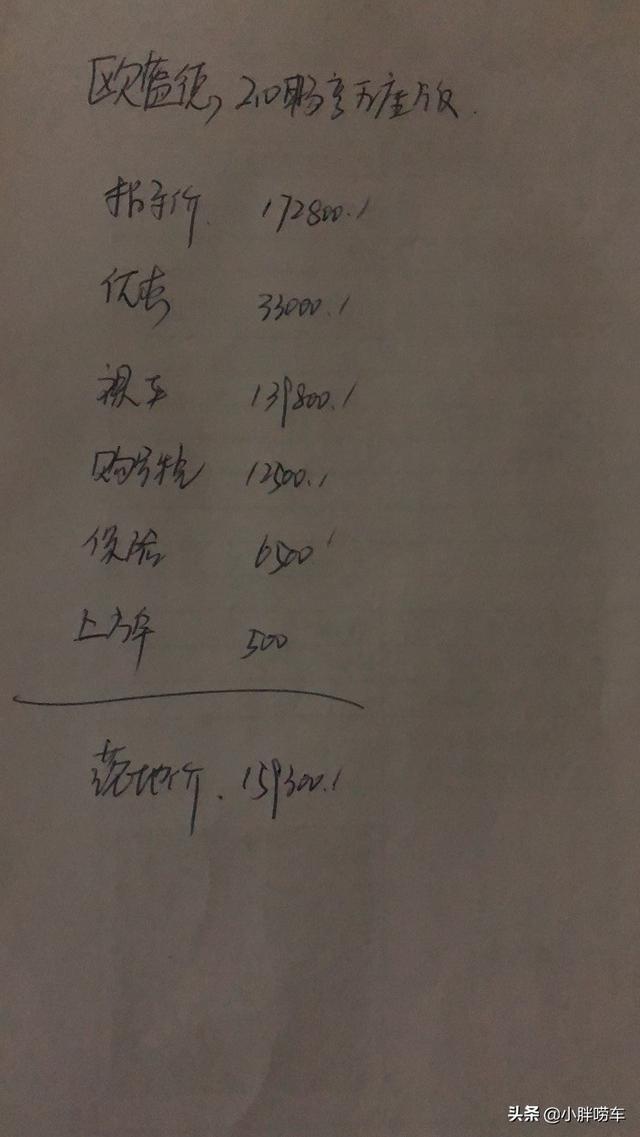 欧蓝德，2.0畅享五座版.
指导价. 172800./
优惠 33000./
裸车 139800./
购置税 12500./
保险 6500/
上牌 500
落地价. 159300./
头条 @小胖唠车